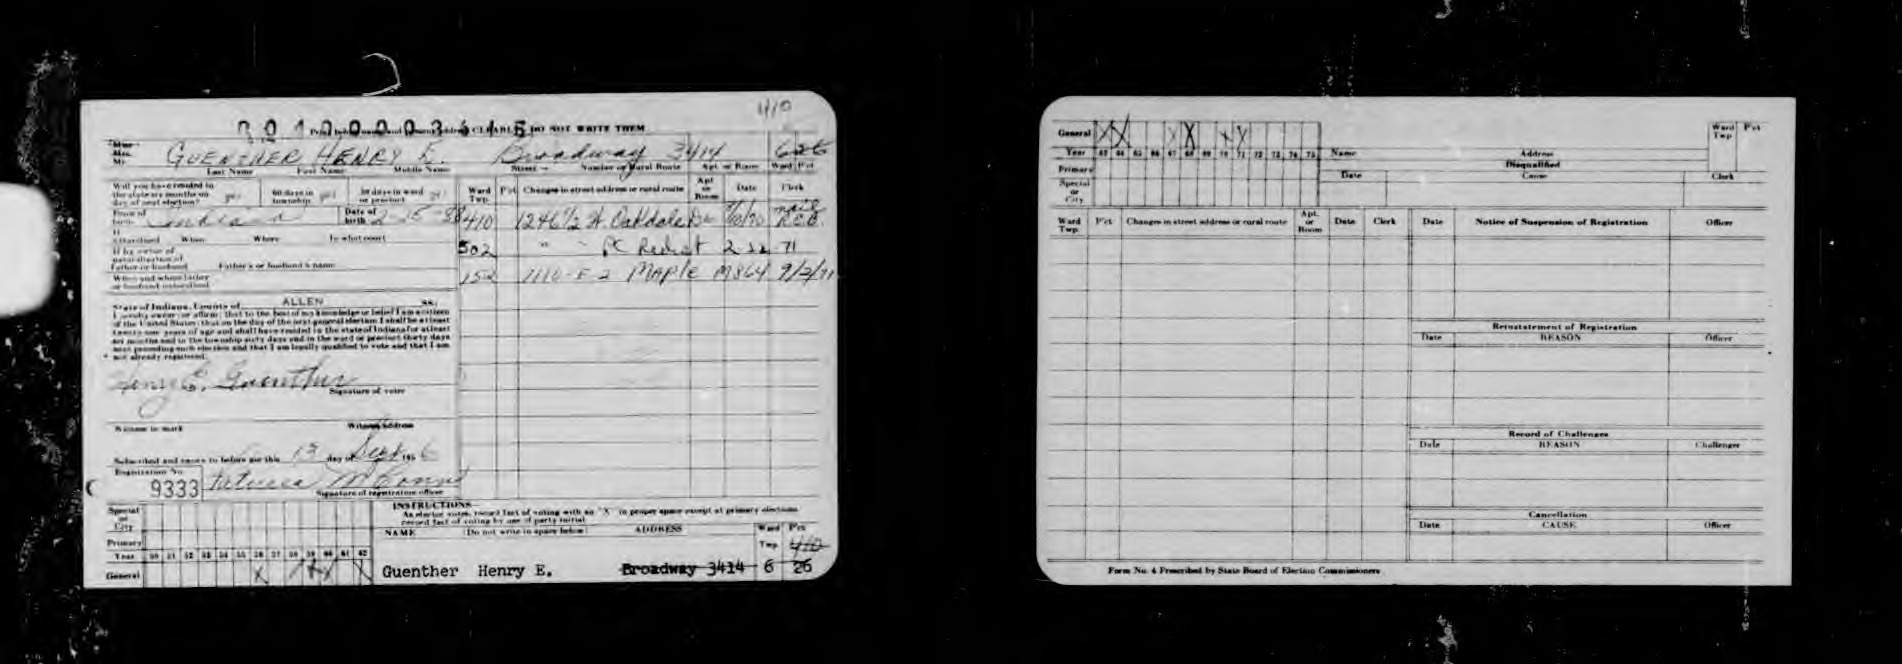 410
Print below name and address CLEARLY DO NOT WRITE THEM
Miss
Mrs.
Mr. GUENTHER HENRY E. Broadway 3414 626
Last Name First Name Middle Name Street Number or Rural Route Apt. or Room Ward Pct
Will you have resided in the state six months on day of next election? yes 60 days in township yes 30 days in ward or precinct yes
Ward Twp. Pct Changes in street address or rural route Apt or Room Date Clerk
Place of birth Indiana Date of birth 2-15-88
410 1246 1/2 W. Oakdale Dr
If naturalized When Where In what court
502 " " PC Redist 2-22-71
If by virtue of naturalization of Father or husband Father's or husband's name
When and where father or husband naturalized
152 1110-E-2 Maple M864 9/2/71
State of Indiana, County of ALLEN SS:
I hereby swear (or affirm) that to the best of my knowledge or belief I am a citizen
of the United States; that on the day of the next general election I shall be at least
twenty-one years of age and shall have resided in the state of Indiana for at least
six months and in the township sixty days and in the ward or precinct thirty days
next preceding such election and that I am legally qualified to vote and that I am
not already registered.
Henry E. Guenther
Signature of voter
Witness to mark Witness Address
Subscribed and sworn to before me this 13 day of Sept. 1956
Registration No.
9333
Signature of registration officer
INSTRUCTIONS
As elector votes, record fact of voting with an "X" in proper space except at primary elections
record fact of voting by use of party initial
Special or City
Primary
Year 50 51 52 53 54 55 56 57 58 59 60 61 62
General X X X
NAME (Do not write in space below) ADDRESS Ward Twp. Pct
410
Guenther Henry E. Broadway 3414 6 26
General X X X X X
Year 63 64 65 66 67 68 69 70 71 72 73 74 75
Primary
Special or City
Name Address Ward Twp Pct
Disqualified
Date Cause Clerk
Ward Twp. Pct Changes in street address or rural route Apt. or Room Date Clerk
Date Notice of Suspension of Registration Officer
Reinstatement of Registration
Date REASON Officer
Record of Challenges
Date REASON Challenger
Cancellation
Date CAUSE Officer
Form No. 4 Prescribed by State Board of Election Commissioners